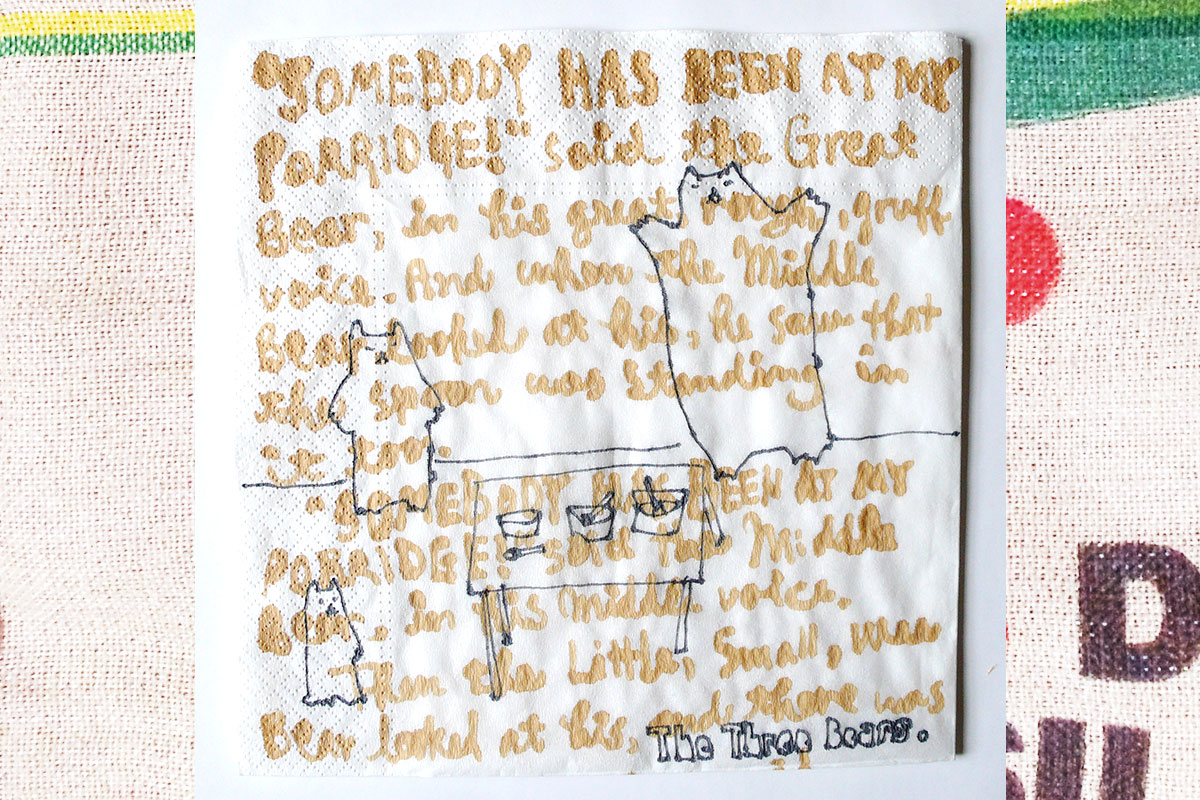 "SOMEBODY HAS BEEN AT MY
PORRIDGE!" said the Great
Bear, in his great rough, gruff
voice. And when the Middle
Bear looked at his, he saw that
the spoon was standing in
it, too.
"SOMEBODY HAS BEEN AT MY
PORRIDGE! said the Middle
Bear. in his middle voice.
Then the Little, Small, Wee
Bear looked at his, and there was
The Three Bears.
D